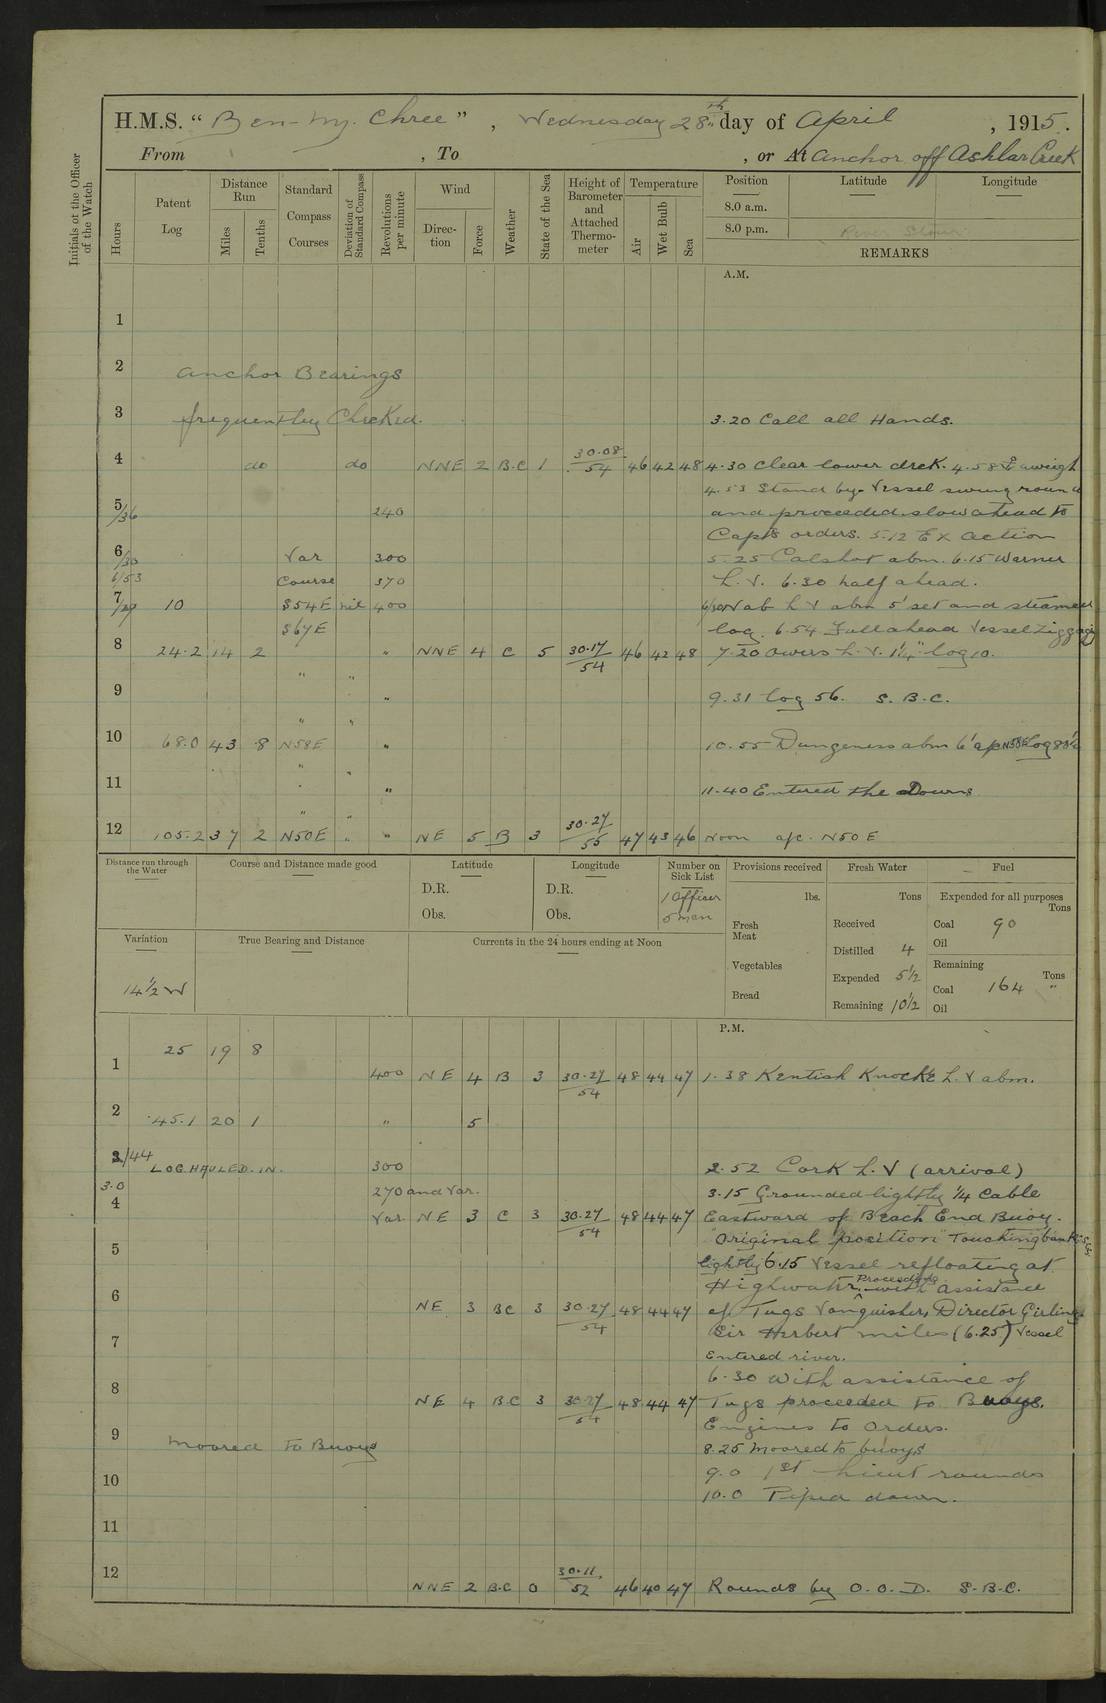 H.M.S. “ Ben-my-Chree ” , Wednesday 28th day of April , 1915.
From , To , or At anchor off Ashlar Creek
Initials of the Officer of the Watch
Hours Patent Log Distance Run Miles Tenths Standard Compass Courses Deviation of Standard Compass Revolutions per minute Wind Direction Force Weather State of the Sea Height of Barometer and Attached Thermometer Temperature Air Wet Bulb Sea Position Latitude Longitude
8.0 a.m.
8.0 p.m. River Stour
REMARKS
A.M.
1
2 Anchor Bearings
3 frequently Checked. 3.20 Call all Hands.
4 do do NNE 2 B.C 1 30.08/54 46 42 48 4.30 Clear lower deck. 4.58 aweigh
4.53 Stand by. Vessel swung round
5/36 240 and proceeded slow ahead to
Capts orders. 5.12 Ex Action
6/30 Var 300 5.25 Calshot abm. 6.15 Warner
6/53 Course 370 L.V. 6.30 half ahead.
7/27 10 S54E nil 400 6/30 Nab L.V abm 5' set and steamed
S67E log. 6.54 Full ahead Vessel Zigzag
8 24.2 14 2 " NNE 4 C 5 30.17/54 46 42 48 7.20 Owers L.V. 1¼" log 10.
" "
9 " 9.31 log 56. S.B.C.
" "
10 68.0 43 .8 N58E " 10.55 Dungeness abm 6' a/c N58E Log 88½
" "
11 " 11.40 Entered the Downs
" "
12 105.2 37 2 N50E " " NE 5 B 3 30.27/55 47 43 46 Noon a/c. N50E
Distance run through the Water Course and Distance made good Latitude Longitude Number on Sick List Provisions received Fresh Water Fuel
D.R. D.R. 1 Officer lbs. Tons Expended for all purposes Tons
Obs. Obs. 5 men Fresh Meat Received Coal 90
Variation True Bearing and Distance Currents in the 24 hours ending at Noon Distilled 4 Oil
Vegetables Expended 5½ Remaining Tons
14½ W Bread Remaining 10½ Coal 164 "
Oil
P.M.
25 19 8
1 400 NE 4 B 3 30.27/54 48 44 47 1.38 Kentish Knock L.V abm.
2 45.1 20 1 " 5
2/44 LOG HAULED. IN. 300 2.52 Cork L.V (arrival)
3.0 270 and Var. 3.15 Grounded lightly ¼ Cable
4 Var NE 3 C 3 30.27/54 48 44 47 Eastward of Beach End Buoy.
"Original position" Touching bank
5 lightly 6.15 Vessel refloating at
Highwater. Proceeding with assistance
6 NE 3 BC 3 30.27/54 48 44 47 of Tugs Vanquisher, Director Girling
7 Sir Herbert Miles (6.25) Vessel
Entered river.
8 6.30 With assistance of
NE 4 B.C 3 30.27/54 48 44 47 Tugs proceeded to Buoys.
9 Engines to Orders.
Moored to Buoys 8.25 Moored to buoys
10 9.0 1st Lieut rounds
10.0 Piped down.
11
12 NNE 2 B.C 0 30.11/52 46 40 47 Rounds by O.O.D. S.B.C.